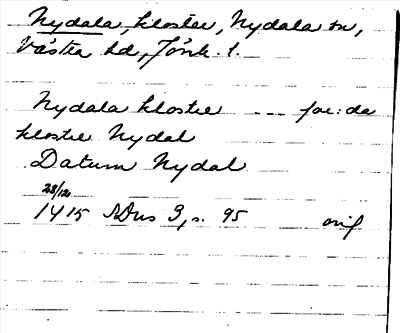 Nydala, kloster, Nydala sn,
Västra hd, Jönk. l.
Nydala kloster --- foe: da
kloster Nydal
Datum Nydal
23/12
1415 SDns 3, s. 95 orig